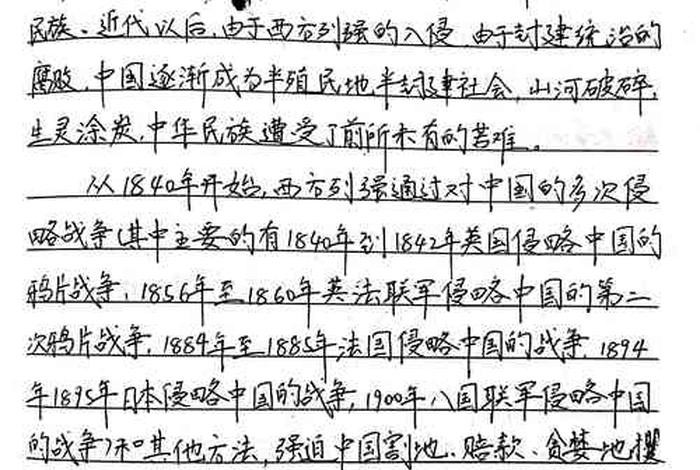 民族、近代以后,由于西方列强的入侵,由于封建统治的
腐败,中国逐渐成为半殖民地半封建社会,山河破碎,
生灵涂炭,中华民族遭受了前所未有的苦难。
从1840年开始,西方列强通过对中国的多次侵
略战争(其中主要的有1840年到1842年英国侵略中国的
鸦片战争,1856年至1860年英法联军侵略中国的第二
次鸦片战争,1884年至1885年法国侵略中国的战争,1894
年1895年日本侵略中国的战争,1900年八国联军侵略中国
的战争)和其他方法,强迫中国割地、赔款、贪婪地攫